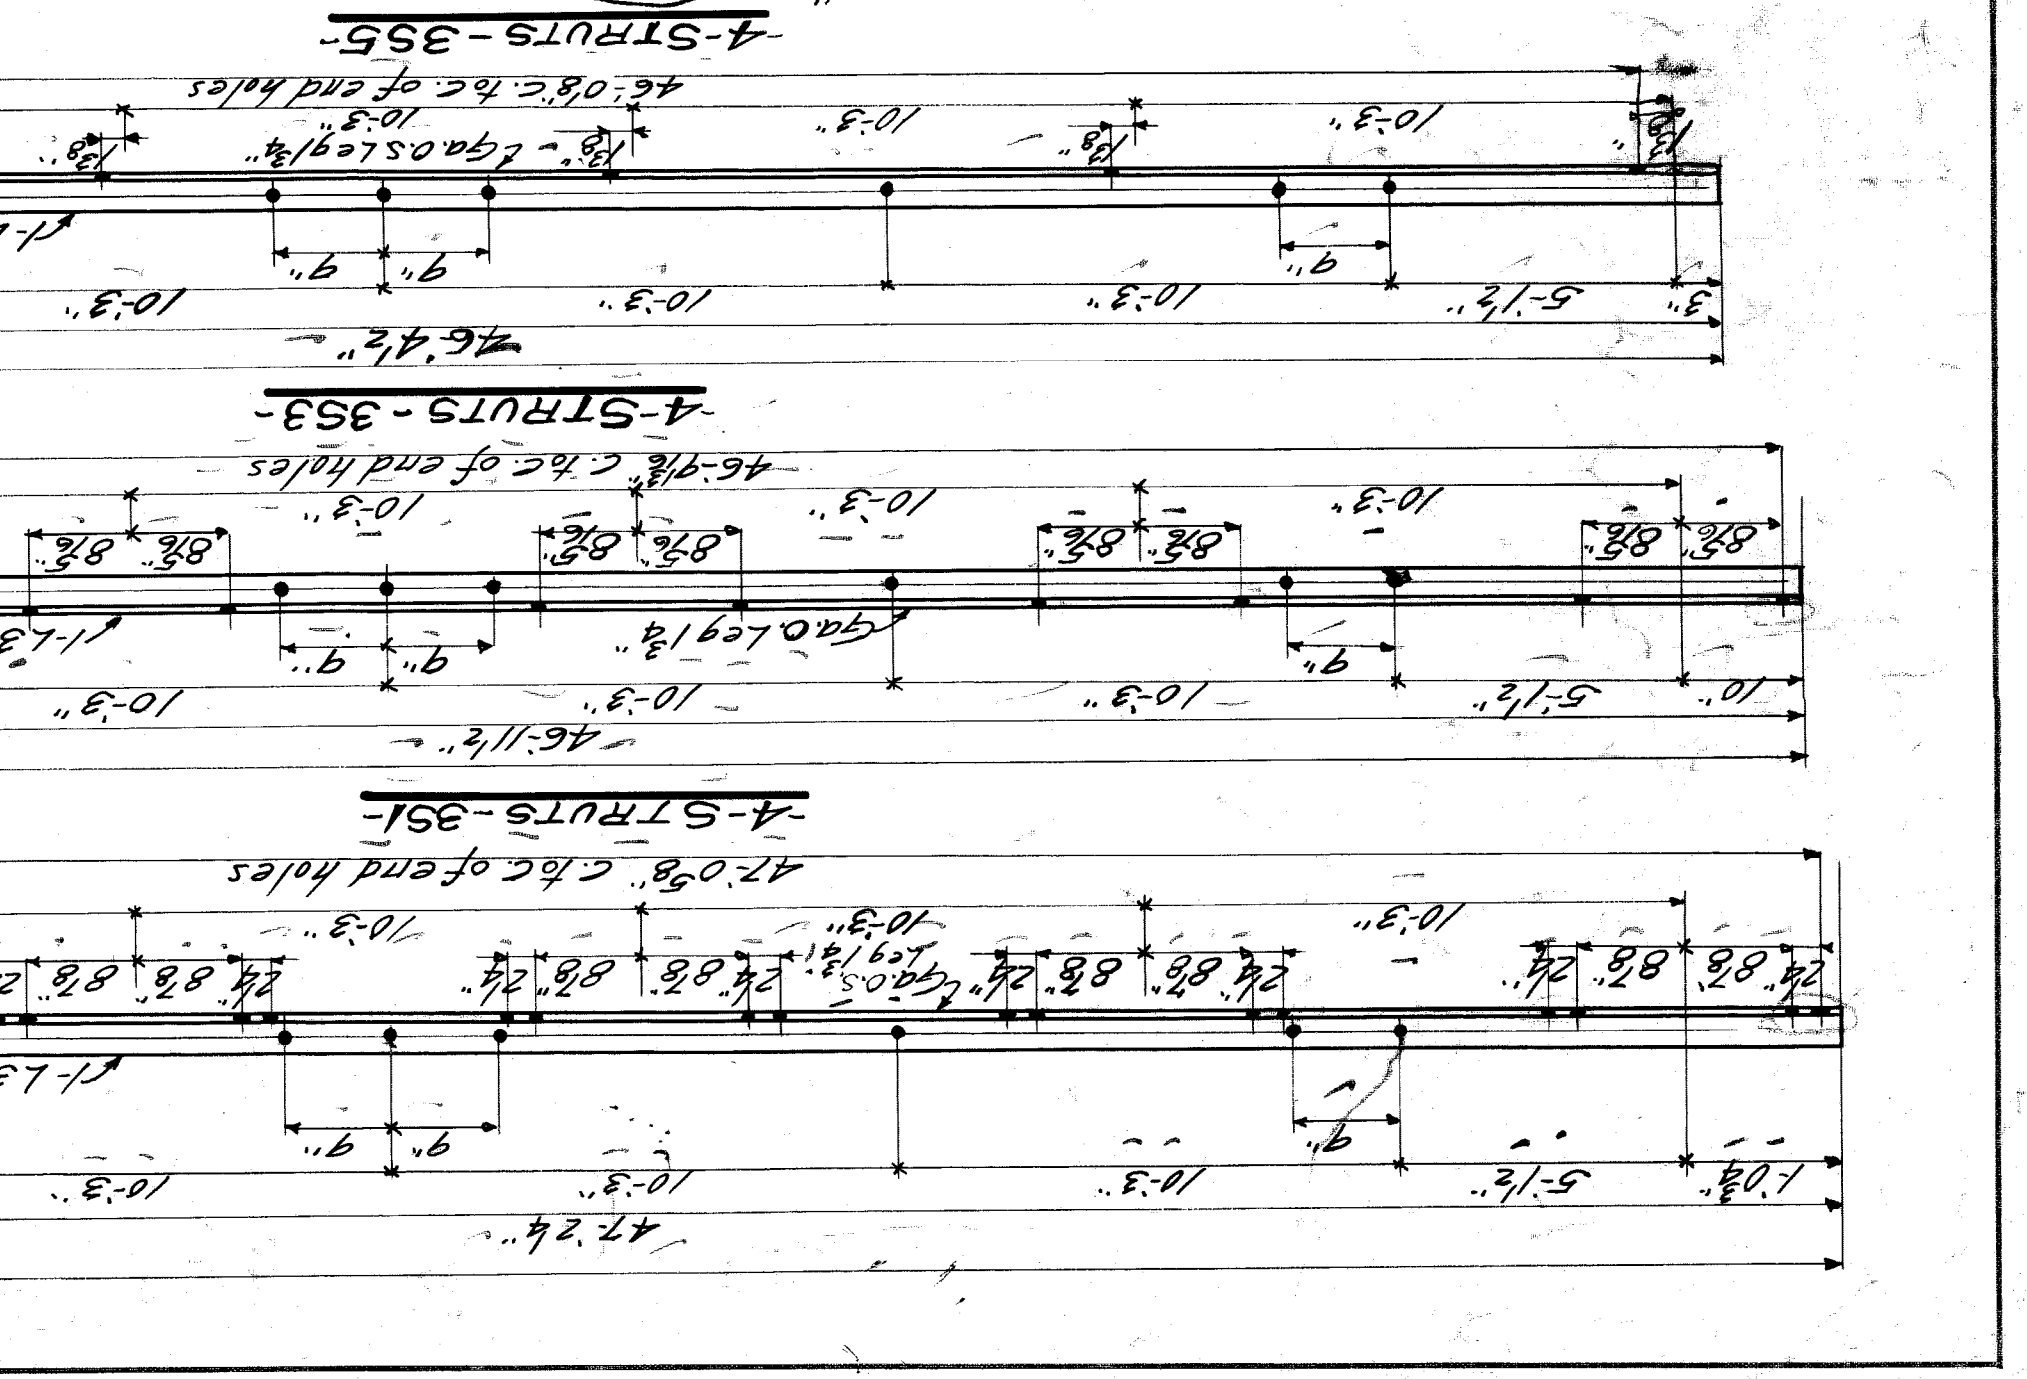 47'-2¼"
1'-0¾" 5'-1½" 10'-3" 10'-3" 10'-3"
9" 9" 9"
1-L3
2¼" 8⅞" 8⅞" 2¼" 2¼" 8⅞" 8⅞" 2¼" Ga.O.S. 2¼" 8⅞" 8⅞" 2¼" 2¼" 8⅞" 8⅞" 2
Leg 1¾"
10'-3" 10'-3" 10'-3"
47'-0⅝" c. to c. of end holes
-4-STRUTS-3S1-
46'-11½"
10" 5'-1½" 10'-3" 10'-3" 10'-3"
9" 9" 9"
Ga.O.Leg 1¾" 1-L3
8 5/16" 8 5/16" 8 5/16" 8 5/16" 8 5/16" 8 5/16" 8 5/16" 8 5/16"
10'-3" 10'-3" 10'-3"
46'-9 13/16" c. to c. of end holes
-4-STRUTS-3S3-
46'-4½"
3" 5'-1½" 10'-3" 10'-3" 10'-3"
9" 9" 9"
1-L
1⅜" 1⅜" 1⅜" Ga.O.S Leg 1¾" 1⅜"
10'-3" 10'-3" 10'-3"
46'-0⅛" c. to c. of end holes
-4-STRUTS-3S5-